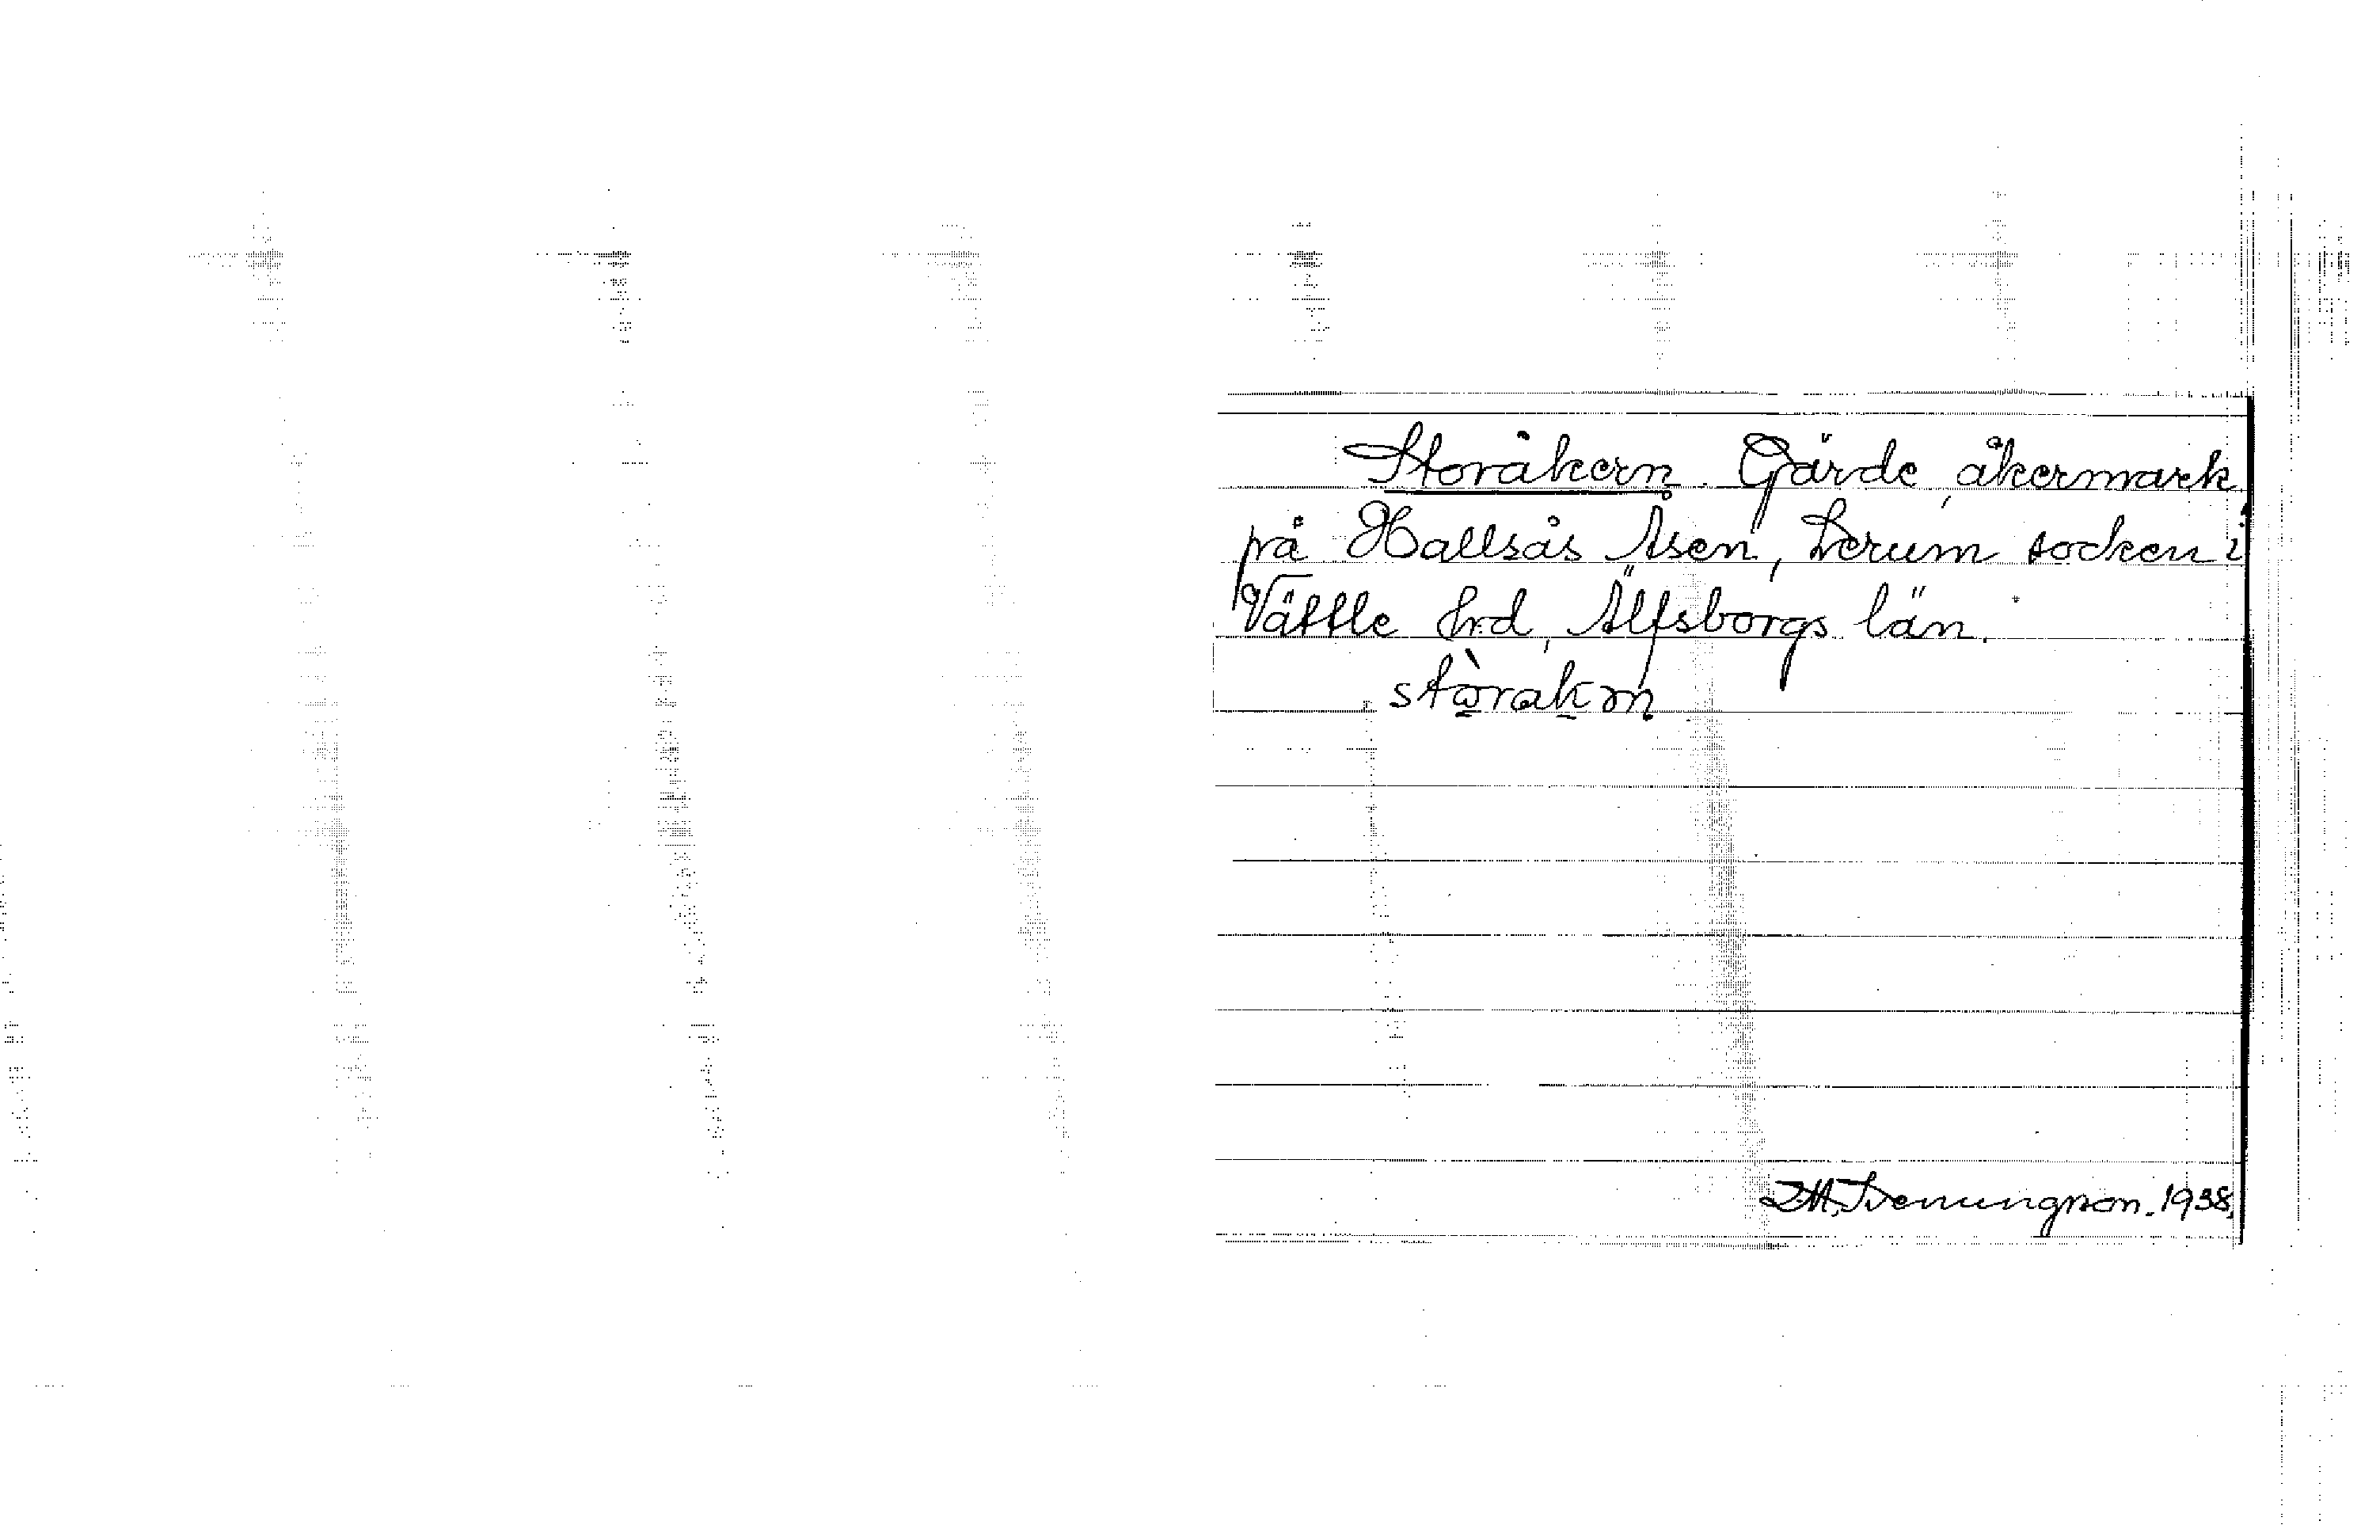 Storåkern. Gärde, åkermark
på Hallsås Åsen, Lerum socken i
Vättle hrd, Älfsborgs län.
stòrakɷn
1938.